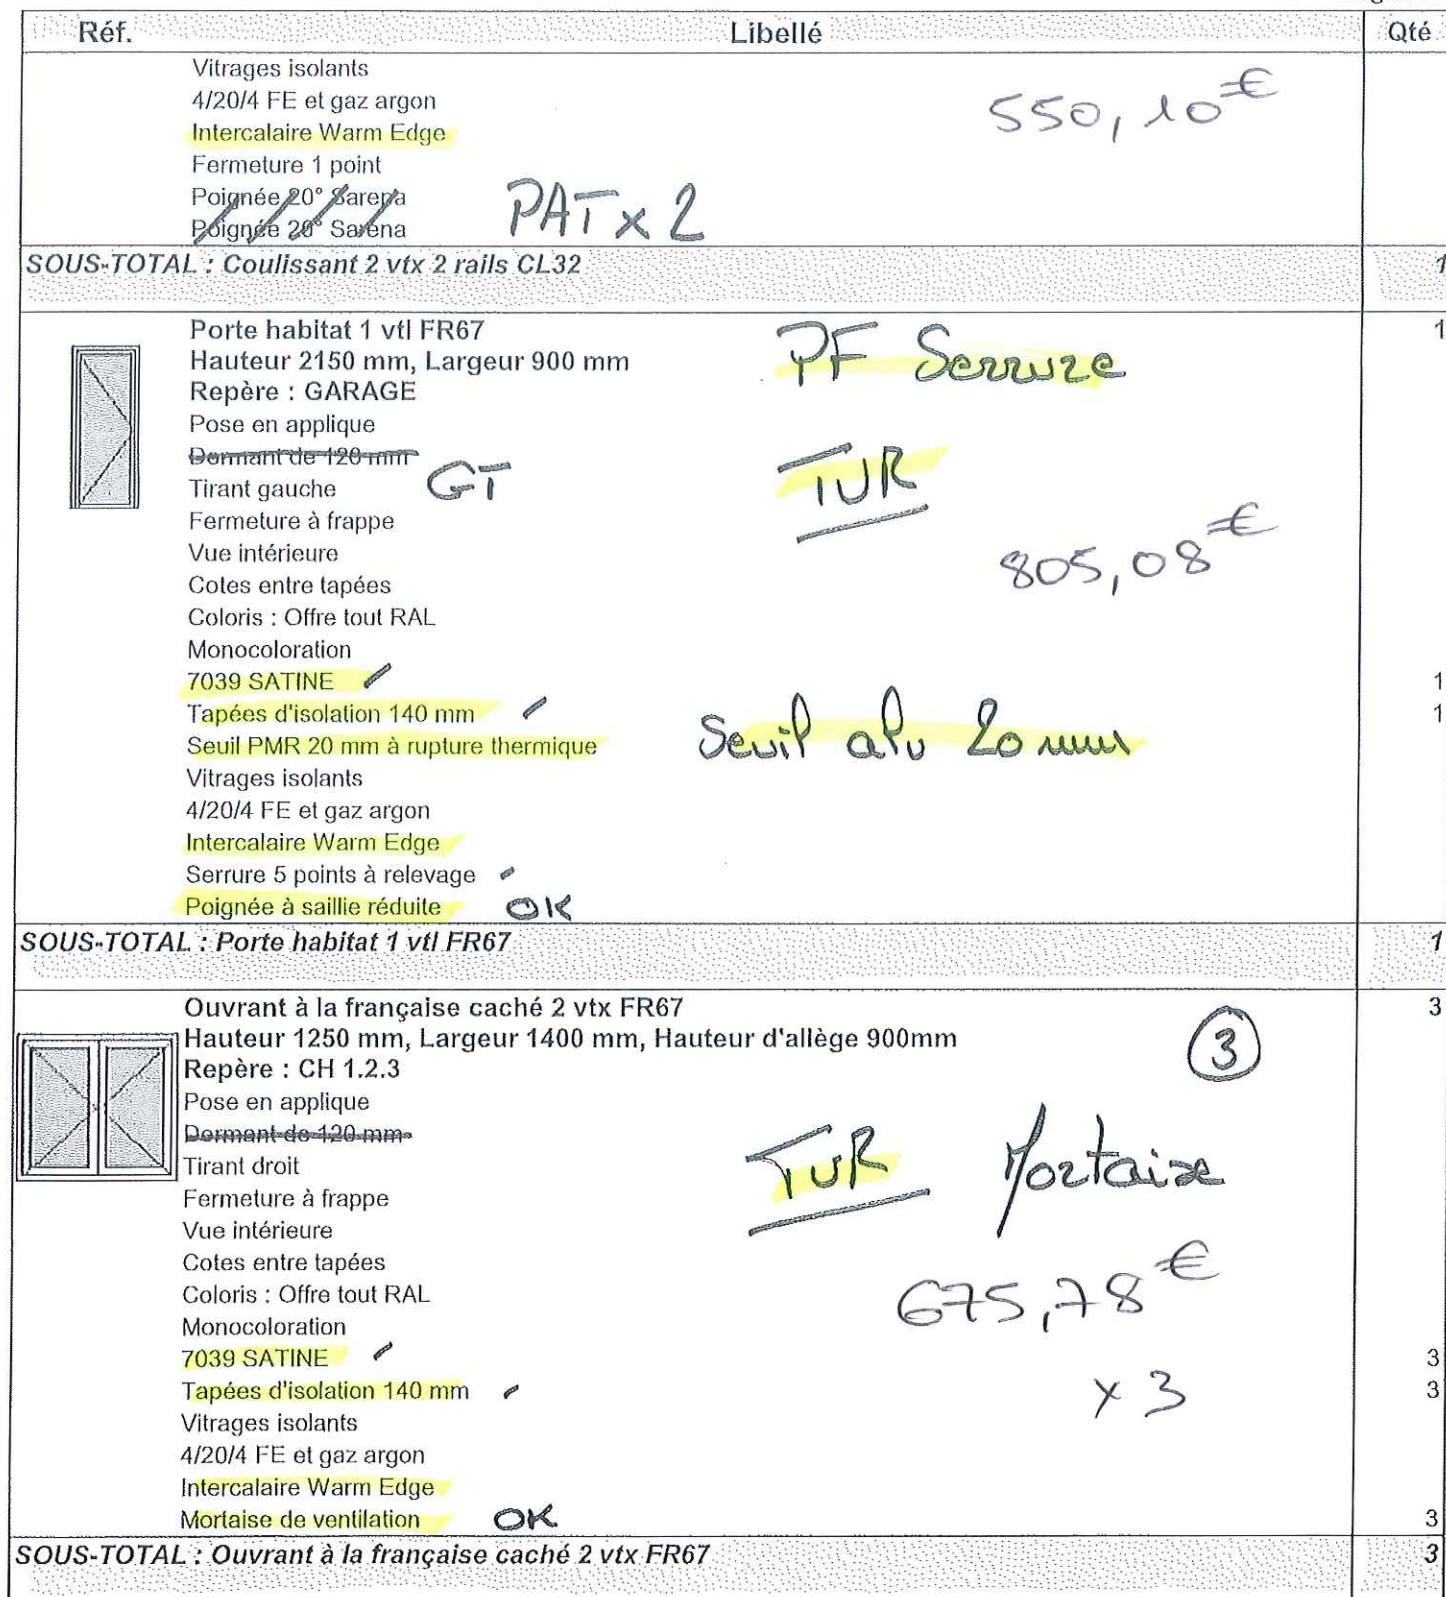 Réf. Libellé Qté
Vitrages isolants
4/20/4 FE et gaz argon 550,10€
Intercalaire Warm Edge
Fermeture 1 point
Poignée 20° Sarena PAT x 2
Poignée 20° Sarena
SOUS-TOTAL : Coulissant 2 vtx 2 rails CL32 1
Porte habitat 1 vtl FR67 PF Serrure 1
Hauteur 2150 mm, Largeur 900 mm
Repère : GARAGE
Pose en applique
Dormant de 120 mm
Tirant gauche GT TUR
Fermeture à frappe
Vue intérieure 805,08€
Cotes entre tapées
Coloris : Offre tout RAL
Monocoloration
7039 SATINE 1
Tapées d'isolation 140 mm 1
Seuil PMR 20 mm à rupture thermique Seuil alu 20 mm
Vitrages isolants
4/20/4 FE et gaz argon
Intercalaire Warm Edge
Serrure 5 points à relevage
Poignée à saillie réduite OK
SOUS-TOTAL : Porte habitat 1 vtl FR67 1
Ouvrant à la française caché 2 vtx FR67 3
Hauteur 1250 mm, Largeur 1400 mm, Hauteur d'allège 900mm 3
Repère : CH 1.2.3
Pose en applique
Dormant de 120 mm
Tirant droit TUR Mortaise
Fermeture à frappe
Vue intérieure
Cotes entre tapées
Coloris : Offre tout RAL 675,78€
Monocoloration
7039 SATINE 3
Tapées d'isolation 140 mm x 3 3
Vitrages isolants
4/20/4 FE et gaz argon
Intercalaire Warm Edge
Mortaise de ventilation OK 3
SOUS-TOTAL : Ouvrant à la française caché 2 vtx FR67 3